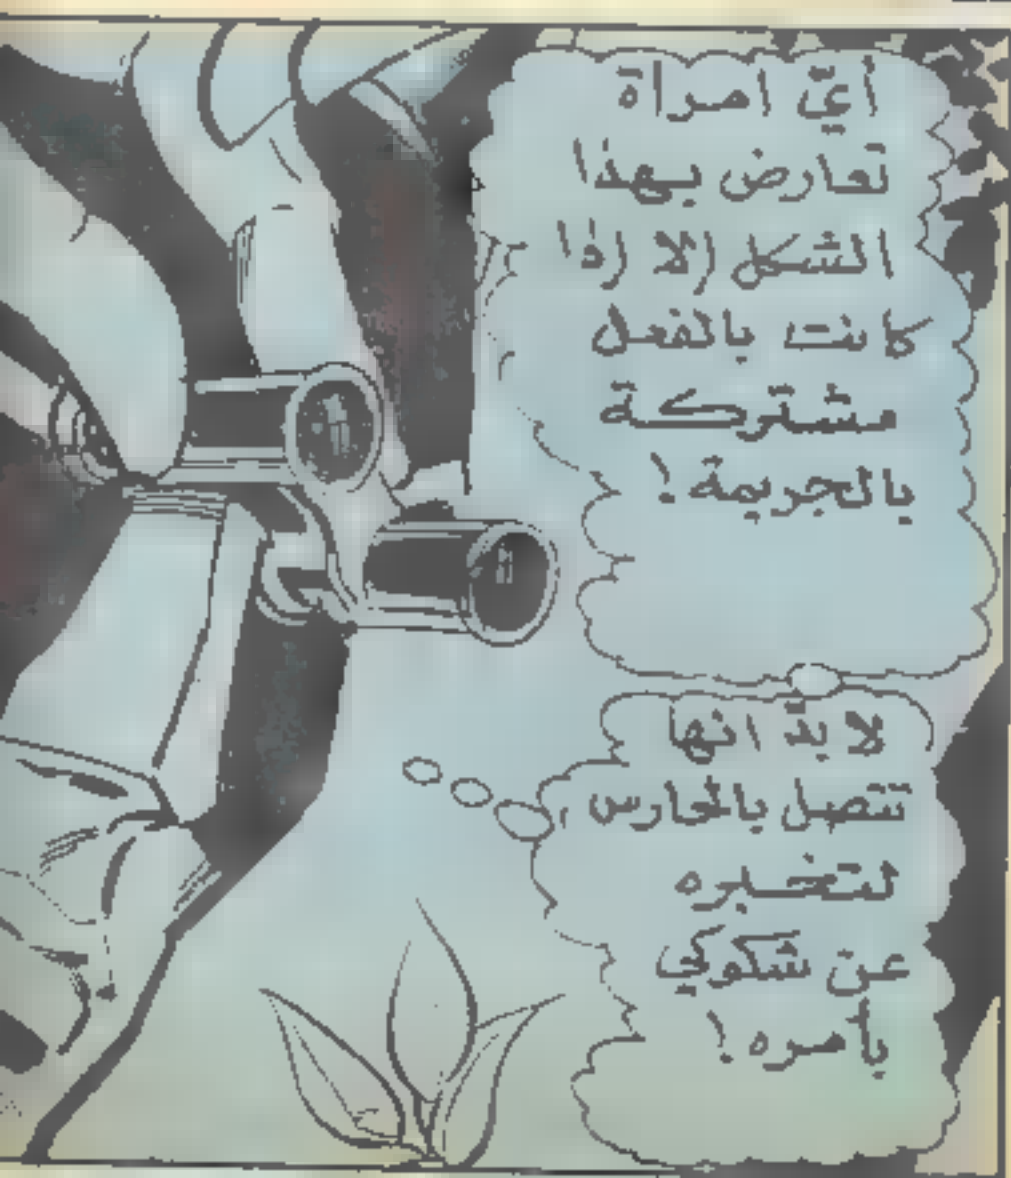 أيّ امرأة
تعارض بهذا
الشكل إلا إذا
كانت بالفعل
مشتركة
بالجريمة!
لا بدّ انها
تتصل بالحارس
لتخبره
عن شكوكي
بأمره!